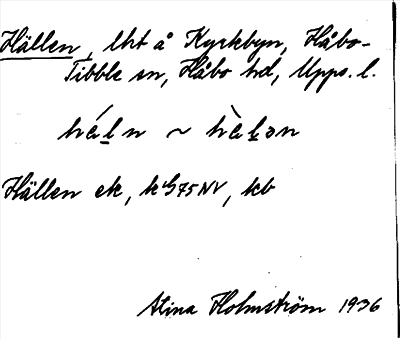 Hällen, lht å Kyrkbyn, Håbo-
Tibble sn, Håbo hd, Upps. l.
hä́l̲n ~ hä̀l̲ən
Hällen ek, k 475 NV, kb
Stina Holmström 1936